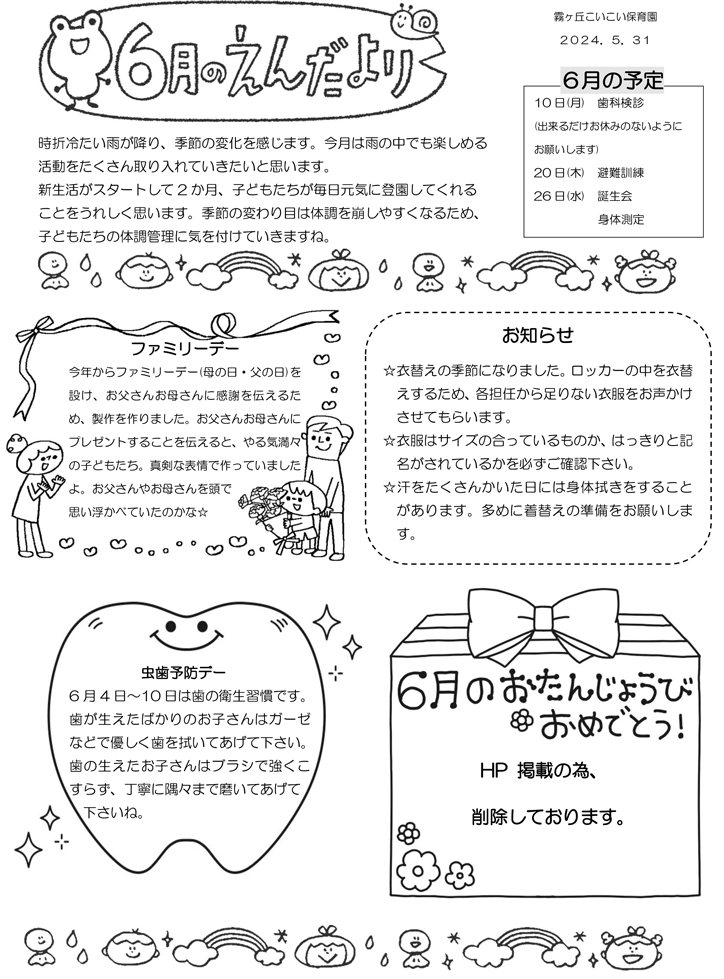 6月のえんだより
霧ヶ丘こいこい保育園
2024. 5. 31
6月の予定
10日(月) 歯科検診
(出来るだけお休みのないように
お願いします)
20日(木) 避難訓練
26日(水) 誕生会
身体測定
時折冷たい雨が降り、季節の変化を感じます。今月は雨の中でも楽しめる
活動をたくさん取り入れていきたいと思います。
新生活がスタートして2か月、子どもたちが毎日元気に登園してくれる
ことをうれしく思います。季節の変わり目は体調を崩しやすくなるため、
子どもたちの体調管理に気を付けていきますね。
ファミリーデー
今年からファミリーデー(母の日・父の日)を
設け、お父さんお母さんに感謝を伝えるた
め、製作を作りました。お父さんお母さんに
プレゼントすることを伝えると、やる気満々
の子どもたち。真剣な表情で作っていました
よ。お父さんやお母さんを頭で
思い浮かべていたのかな☆
お知らせ
☆衣替えの季節になりました。ロッカーの中を衣替
えするため、各担任から足りない衣服をお声かけ
させてもらいます。
☆衣服はサイズの合っているものか、はっきりと記
名がされているかを必ずご確認下さい。
☆汗をたくさんかいた日には身体拭きをすること
があります。多めに着替えの準備をお願いしま
す。
虫歯予防デー
6月4日～10日は歯の衛生習慣です。
歯が生えたばかりのお子さんはガーゼ
などで優しく歯を拭いてあげて下さい。
歯の生えたお子さんはブラシで強くこ
すらず、丁寧に隅々まで磨いてあげて
下さいね。
6月のおたんじょうび
おめでとう!
HP 掲載の為、
削除しております。